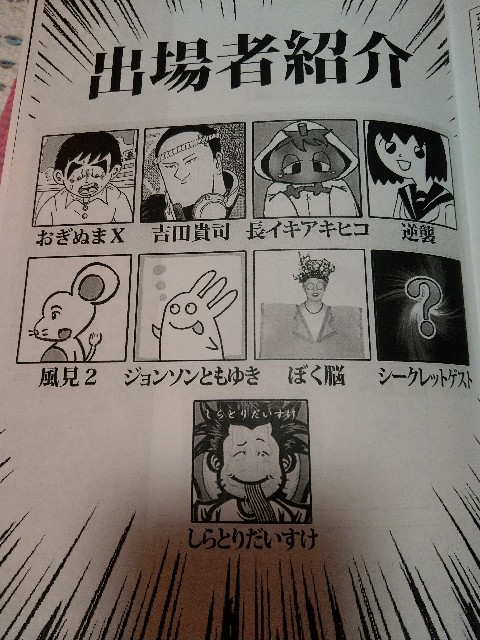 出場者紹介
おぎぬまX
吉田貴司
長イキアキヒコ
逆襲
風見2
ジョンソンともゆき
ぼく脳
シークレットゲスト
?
しらとりだいすけ
しらとりだいすけ